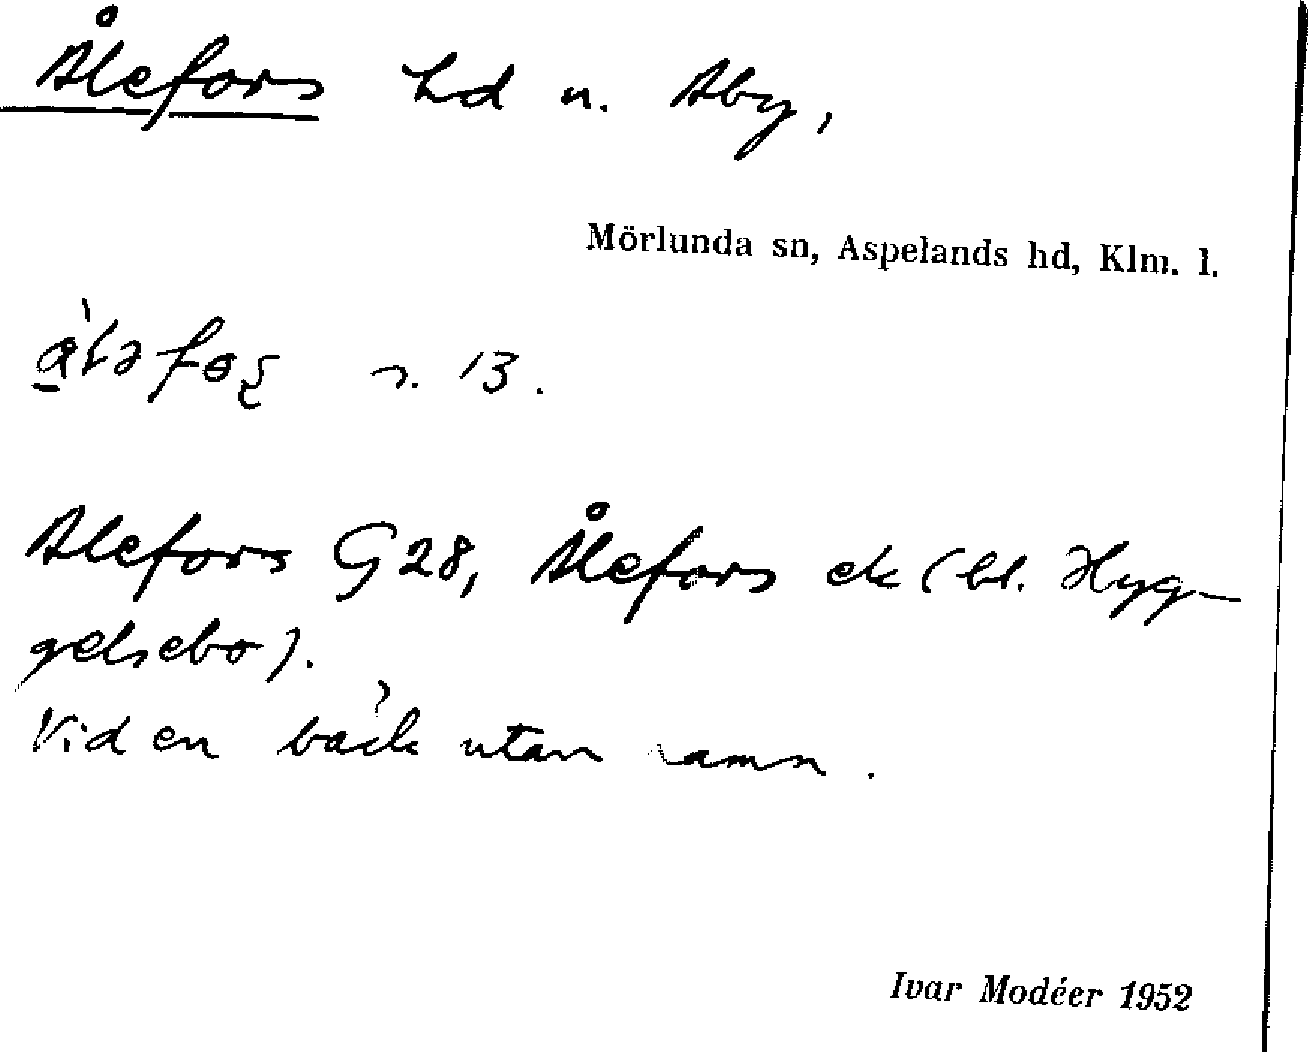 Ålefors hd u. Åby,
Mörlunda sn, Aspelands hd, Klm. l.
s. 13.
Alefors G28, Ålefors ek (bl. Hyg-
gelsebo).
Vid en bäck utan namn.
Ivar Modéer 1952